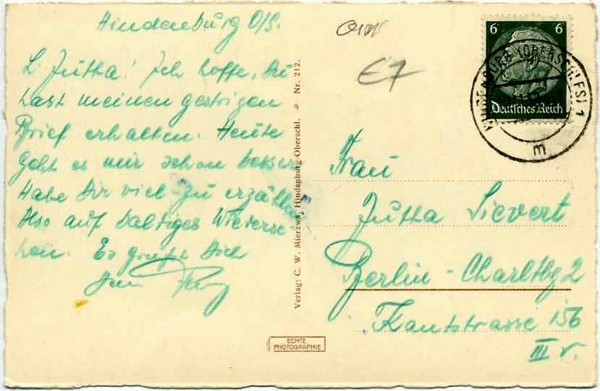 Hindenburg O/S.
L. Jutha! Ich hoffe, Du
hast meinen gestrigen
Brief erhalten. Heute
geht es mir schon besser
Habe Dir viel zu erzählen
Also auf baldiges Wiederse-
hen. Es grüßt Dich
Dein
Verlag: C. W. Mierzwa, Hindenburg-Oberschl. Nr. 212.
ECHTE
PHOTOGRAPHIE
E7
6 6
Deutsches Reich
(OBERSCHLES) 1
m
Frau
Jutha Sievert
Berlin-Charltbg 2
Kantstrasse 156
III r.